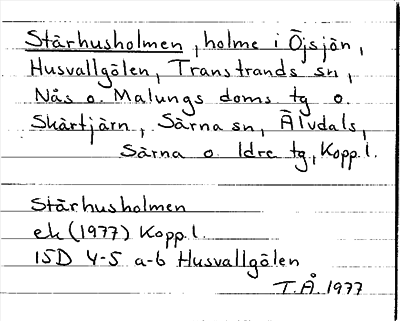 Stärhusholmen, holme i Öjsjön,
Husvallgölen, Transtrands sn,
Nås o. Malungs doms tg o.
Skärtjärn, Särna sn, Älvdals,
Särna o. Idre tg, Kopp. l.
Stärhusholmen
ek (1977) Kopp. l.
15D 4-5 a-b Husvallgölen
T.Å. 1977